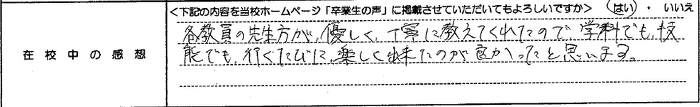 <下記の内容を当校ホームページ「卒業生の声」に掲載させていただいてもよろしいですか> はい ・ いいえ
在校中の感想
各教員の先生方が、優しく、丁寧に教えてくれたので、学科でも、技
能でも、行くたびに、楽しく出来たのが良かったと思います。